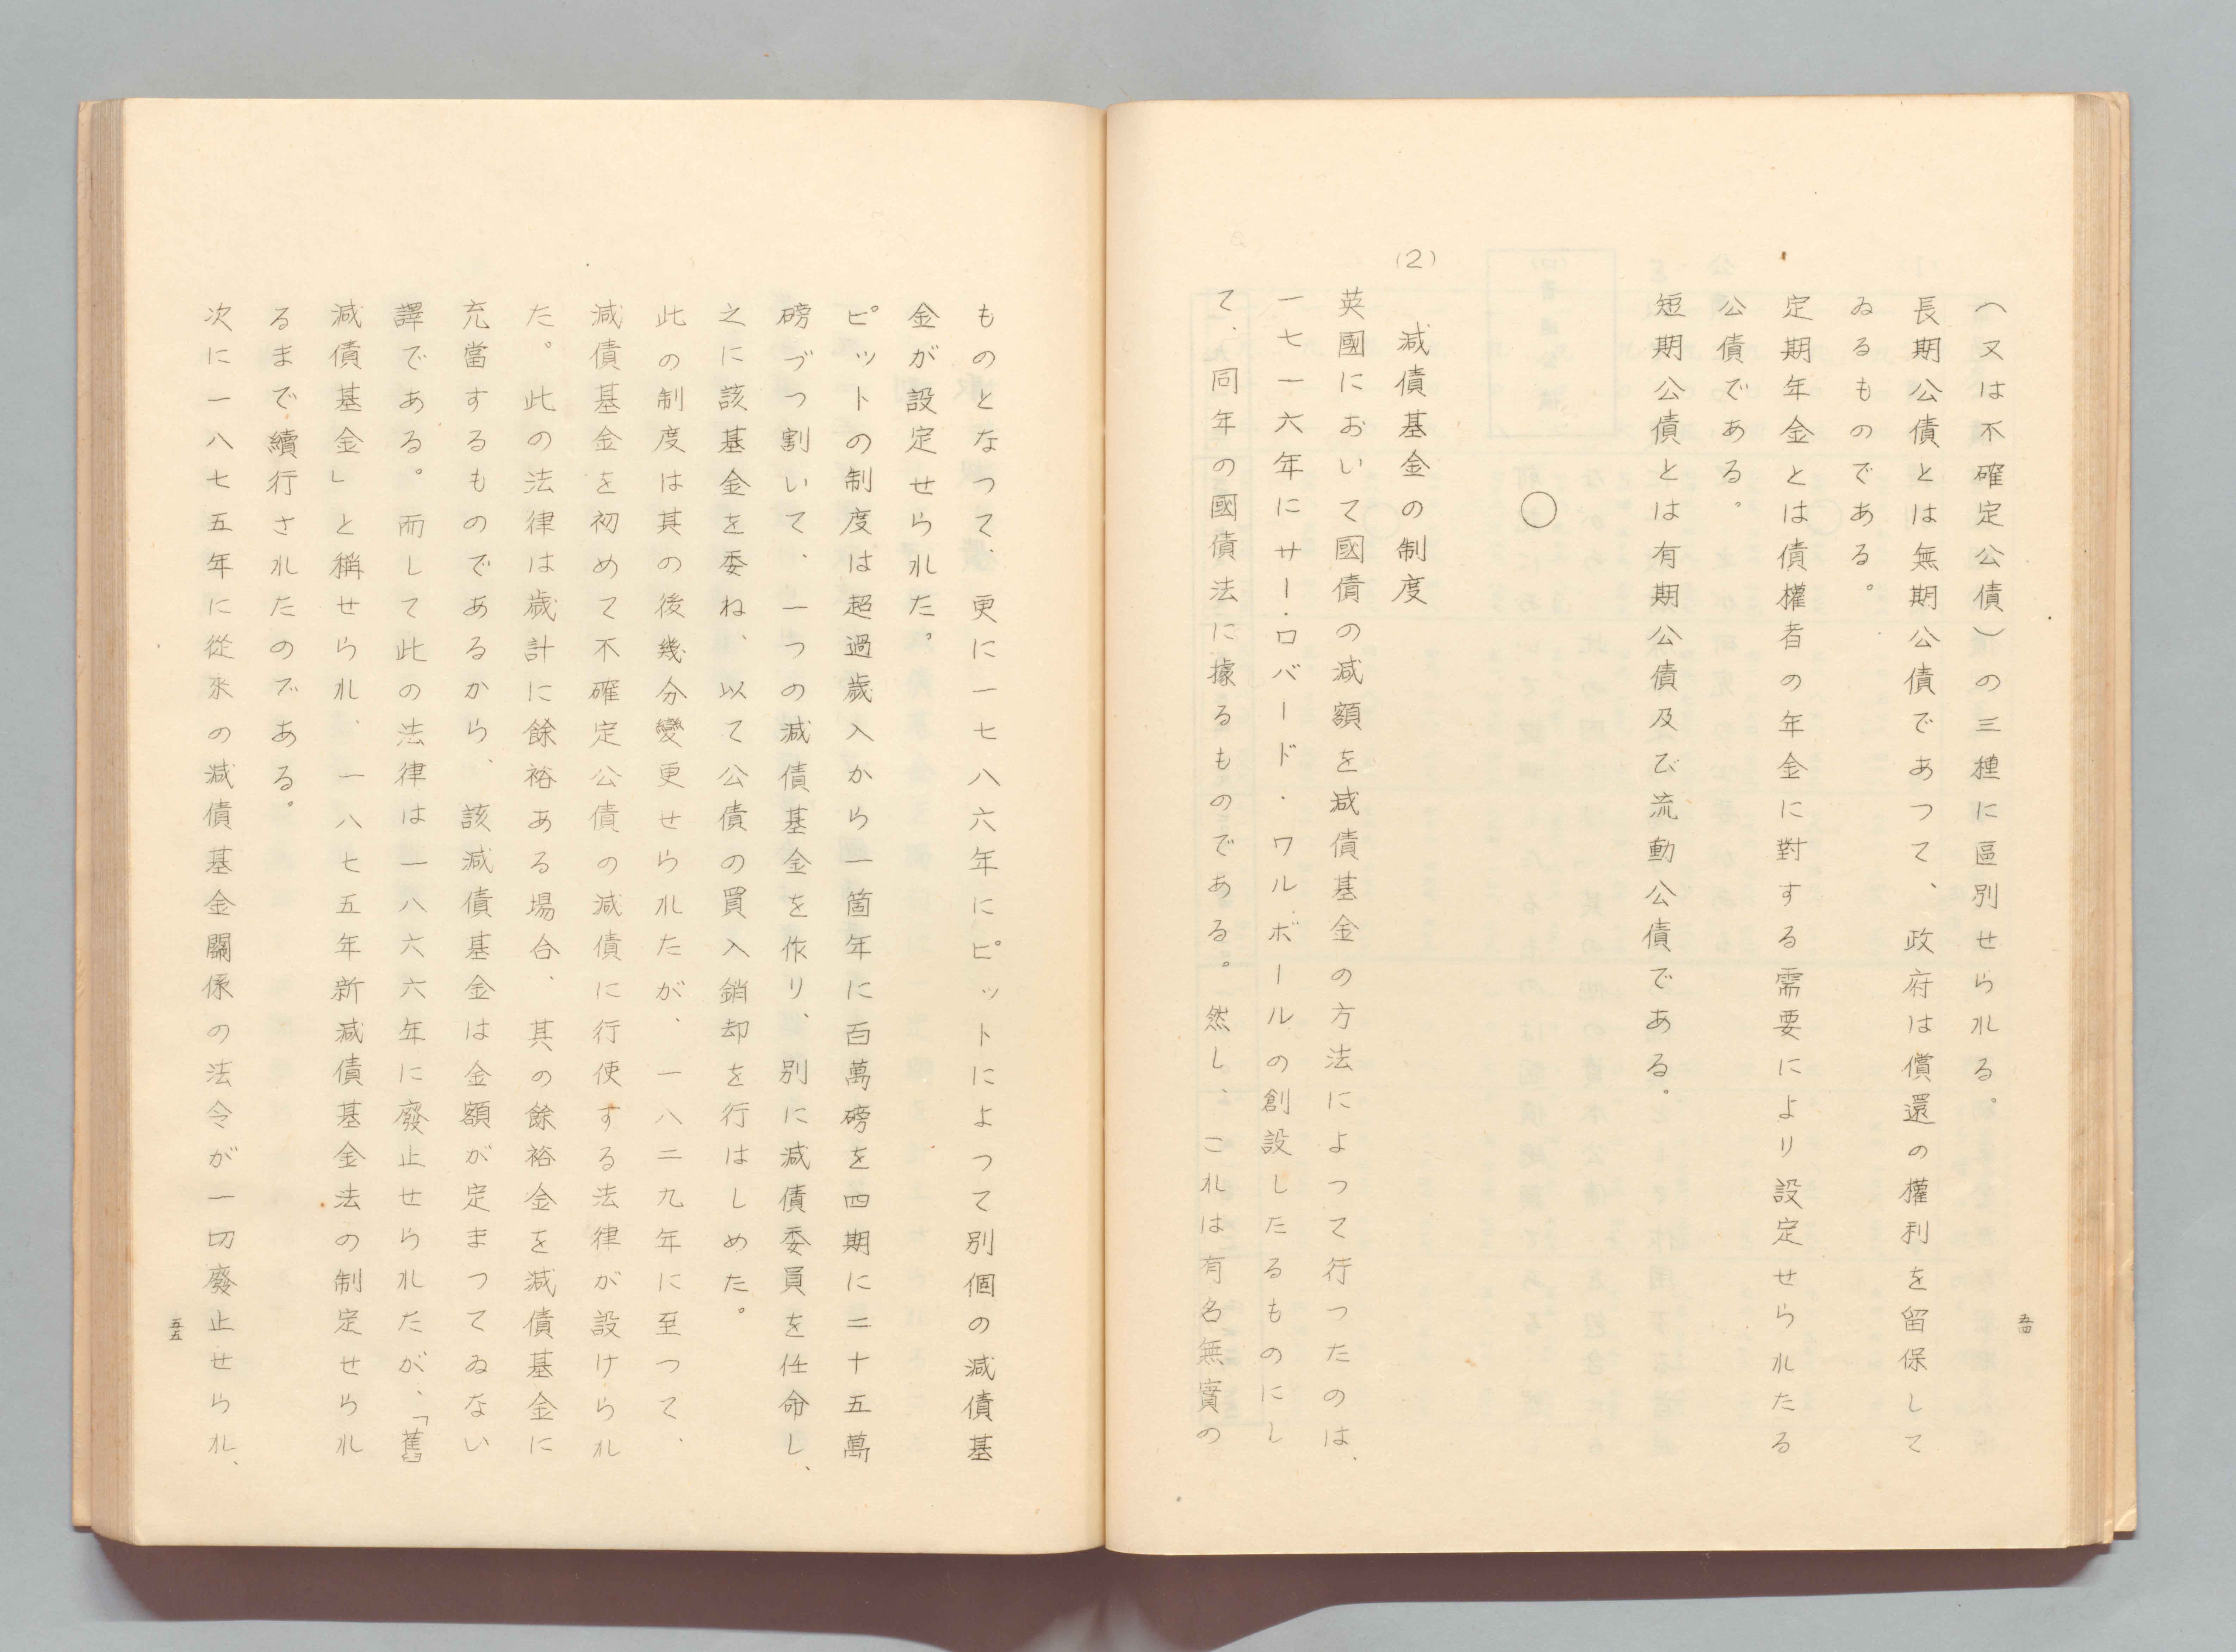 （又は不確定公債）の三種に區別せられる。
長期公債とは無期公債であつて、政府は償還の權利を留保して
ゐるものである。
定期年金とは債權者の年金に對する需要により設定せられたる
公債である。
短期公債とは有期公債及び流動公債である。
○
(2)　減債基金の制度
英國において國債の減額を減債基金の方法によつて行つたのは、
一七一六年にサー・ロバード・ワルボールの創設したるものにし
て、同年の國債法に據るものである。然し、これは有名無實の
五四
ものとなつて、更に一七八六年にピットによつて別個の減債基
金が設定せられた。
ピットの制度は超過歳入から一箇年に百萬磅を四期に二十五萬
磅づつ割いて、一つの減債基金を作り、別に減債委員を任命し、
之に該基金を委ね、以て公債の買入銷却を行はしめた。
此の制度は其の後幾分變更せられたが、一八二九年に至つて、
減債基金を初めて不確定公債の減債に行使する法律が設けられ
た。此の法律は歳計に餘裕ある場合、其の餘裕金を減債基金に
充當するものであるから、該減債基金は金額が定まつてゐない
譯である。而して此の法律は一八六六年に廢止せられたが、「舊
減債基金」と稱せられ、一八七五年新減債基金法の制定せられ
るまで續行されたのである。
次に一八七五年に從來の減債基金關係の法令が一切廢止せられ、
五五